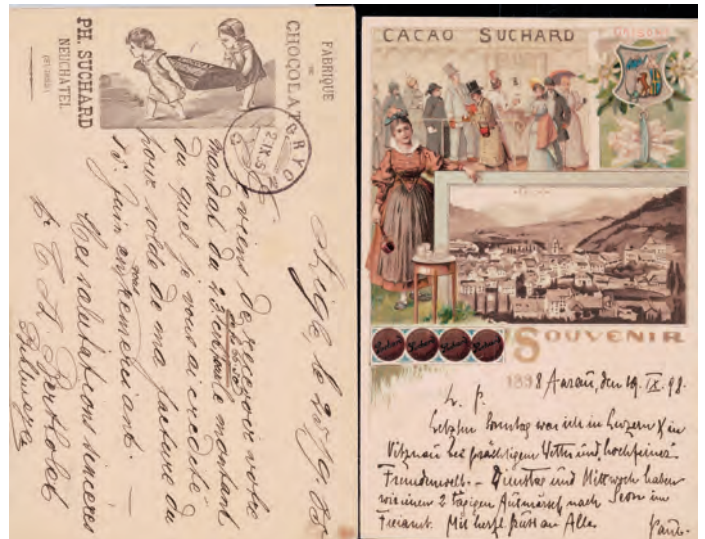 FABRIQUE
DE
CHOCOLAT
PH. SUCHARD
NEUCHATEL
(SUISSE)
RYO
2 IX 5
Aigle, le 2 /9. 85
viens de recevoir votre
mandat du 2 montant
du quel je vous ai crédité
pour solde de ma facture du
15 juin en vous remerciant. —
Mes salutations sincères
CACAO SUCHARD
GRISONS
Suchard Suchard Suchard Suchard
SOUVENIR
1898 Aarau, den 19. IX. 98.
L. P.
Letzten Sonntag war ich in Luzern & in
Vitznau bei prächtigem Wetter und hochfeiner
Fremdenwelt. – Dienstag und Mittwoch haben
wir einen 2 tägigen Ausmarsch nach Seon im
Freiamt. Mit herzl. Gruss an Alle.
Paul.